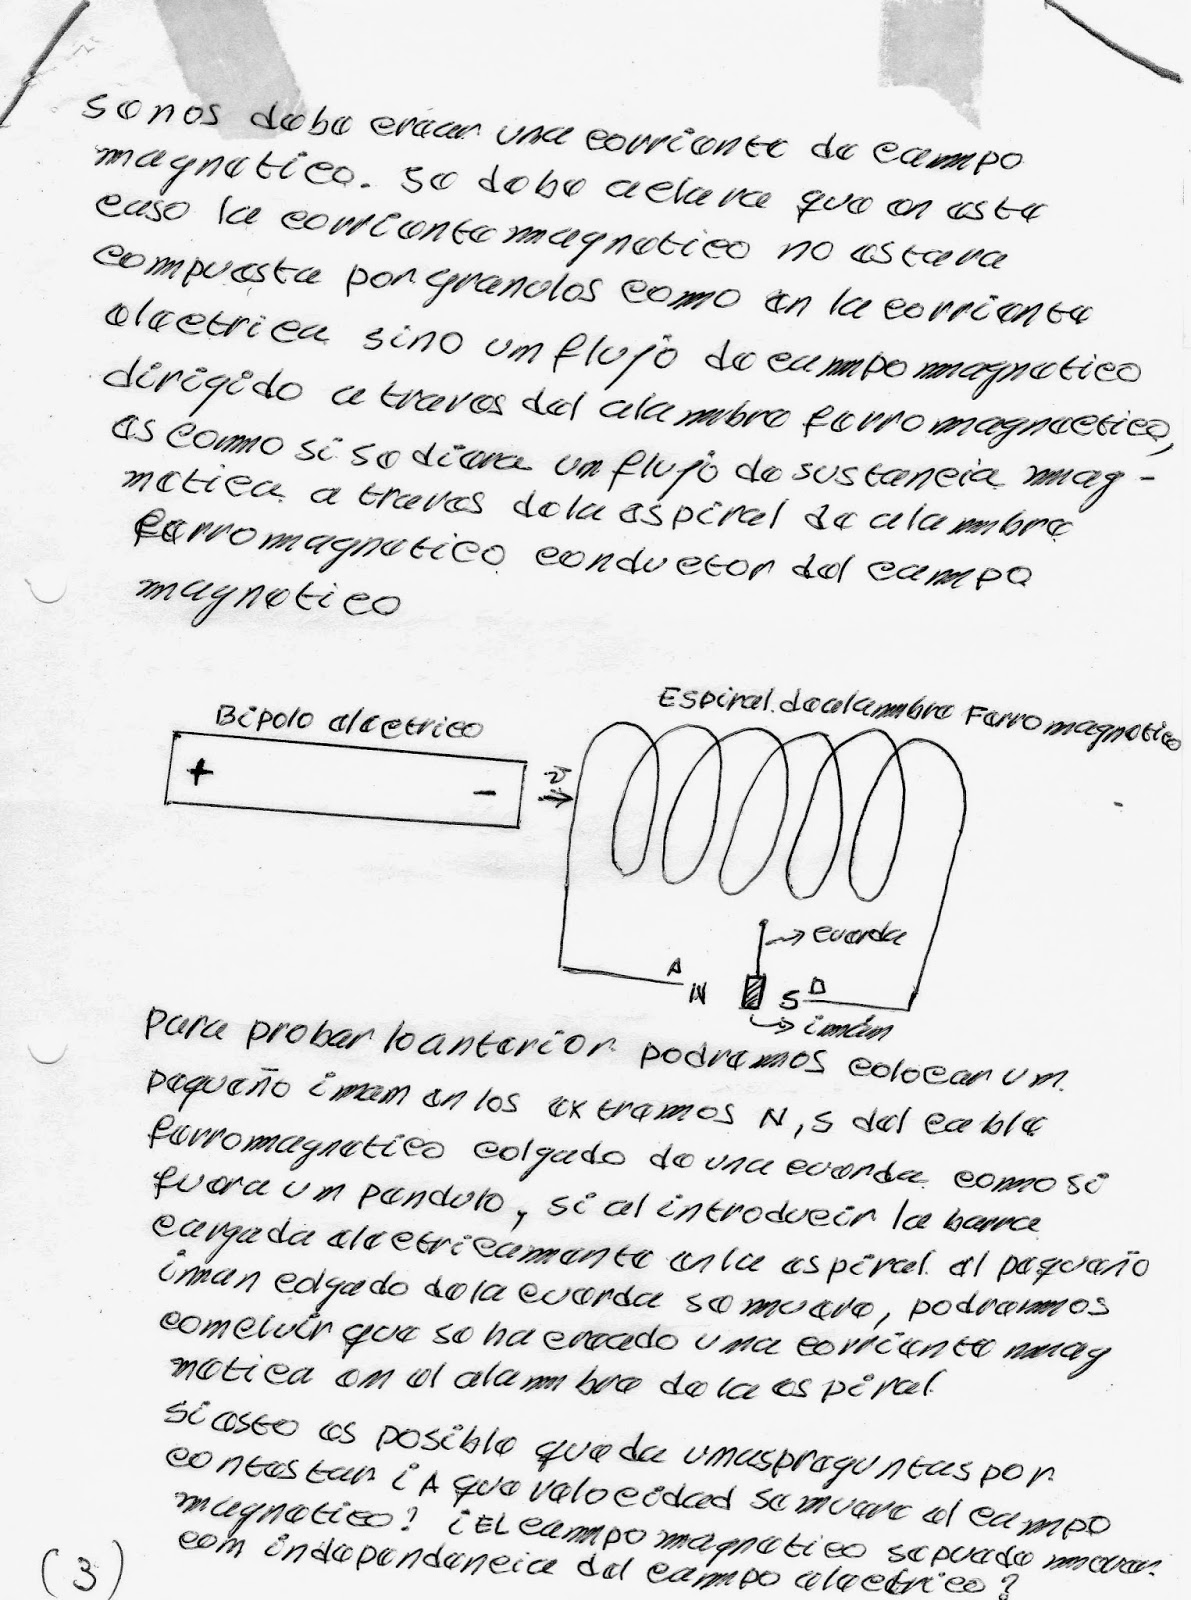 se nos debe crear una corriente de campo
magnetico. Se debe aclara que en este
caso la corriente magnetico no estara
compuesta por granulos como en la corriente
electrica sino um flujo de campo magnetico
dirigido a traves del alambre ferromagnectico,
es como si se diera um flujo de sustancia mag-
netica a traves de la espiral de alambre
ferromagnetico conductor del campo
magnetico
Bipolo electrico
Espiral de alambre Ferromagnetico
+
-
v
cuerda
A
N
S
D
imán
para probar lo anterior podremos colocar um
pequeño imam en los extremos N, S del cable
ferromagnetico colgado de una cuerda como si
fuera um pendulo, si al introducir la barra
cargada electricamente en la espiral el pequeño
iman colgado de la cuerda se mueve, podremos
comcluir que se ha creado una corriente mag
netica em el alambre de la espiral
si esto es posible queda umas preguntas por
contestar ¡A que velocidad se mueve el campo
magnetico? ¡El campo magnetico se puede mover
com independencia del campo electrico?
(3)